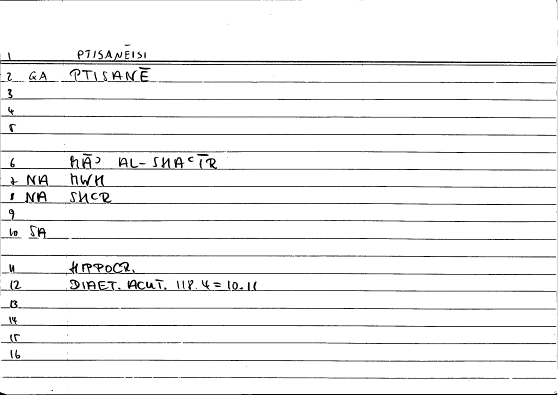 1 PTISANĒISI
2 GA PTISANĒ
3
4
5
6 MĀ' AL-SHAʿĪR
7 NA MWH
8 NA SHCR
9
10 SA
11 HIPPOCR.
12 DIAET. ACUT. 118.4 = 10.11
13
14
15
16